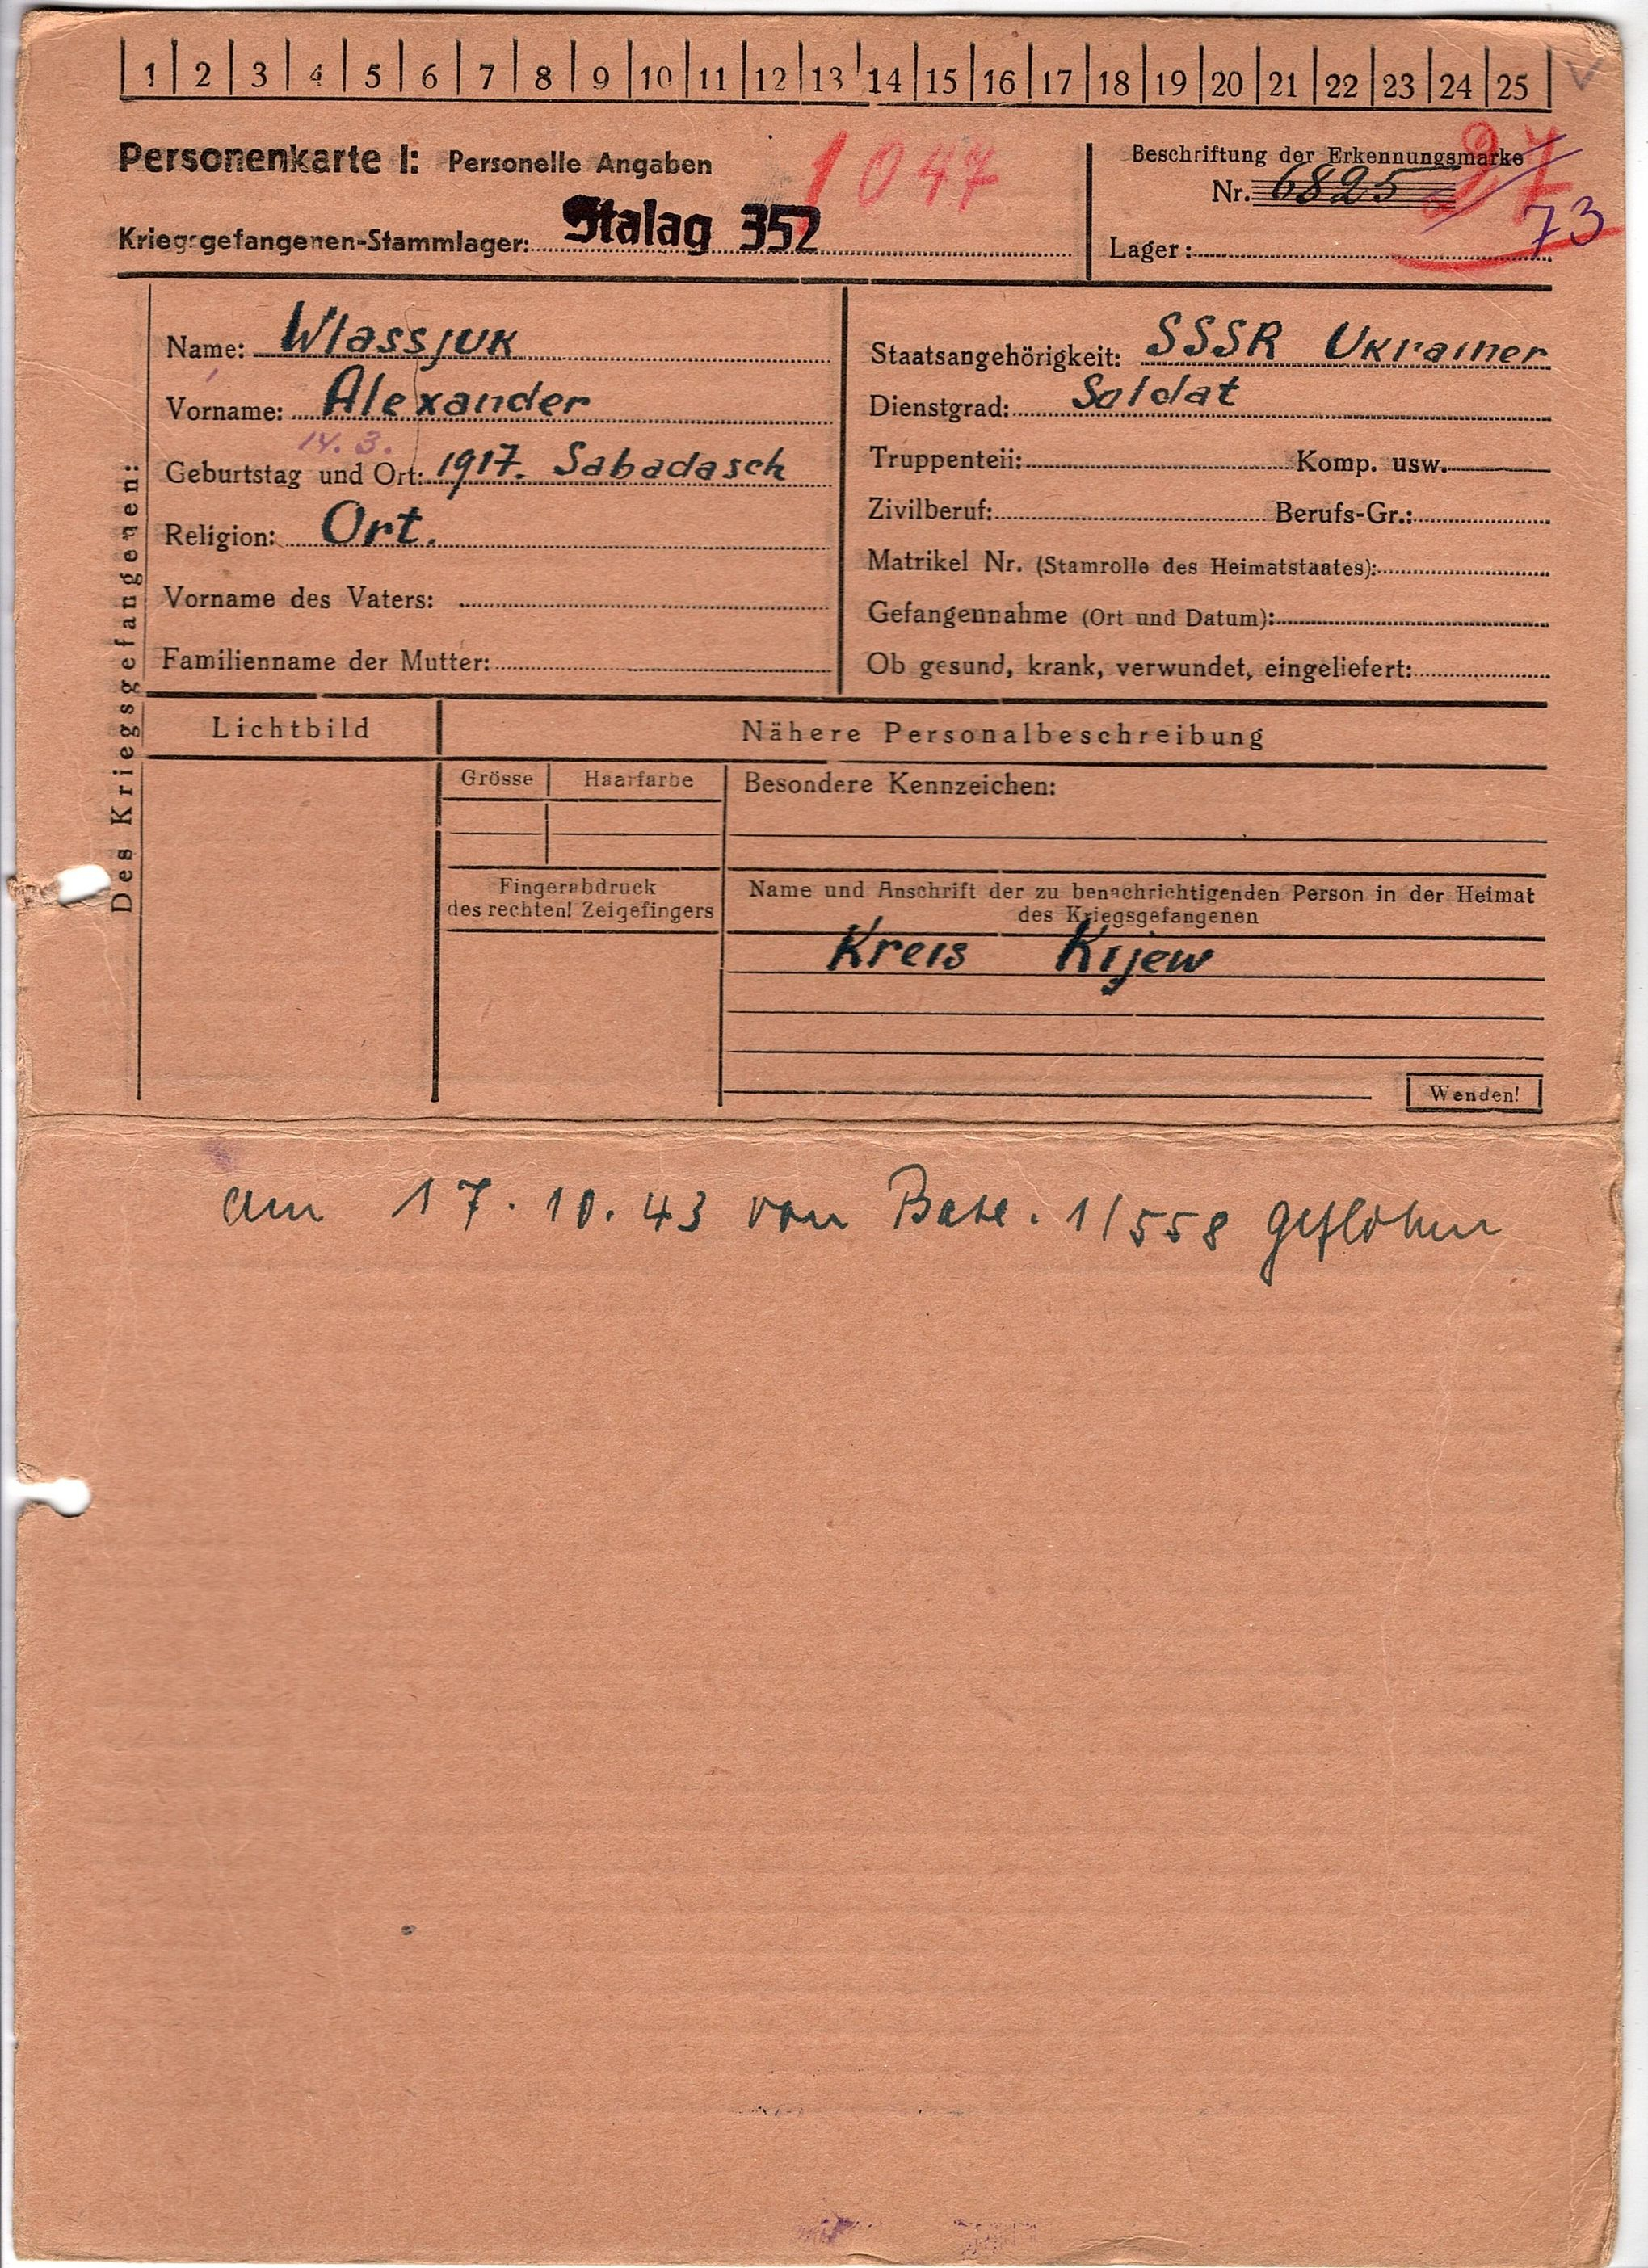 1 2 3 4 5 6 7 8 9 10 11 12 13 14 15 16 17 18 19 20 21 22 23 24 25
Personenkarte I: Personelle Angaben
1047
Kriegsgefangenen-Stammlager: Stalag 352
Beschriftung der Erkennungsmarke
27
Nr. 6825
73
Lager:
Des Kriegsgefangenen:
Name: Wlassjuk
Vorname: Alexander
14. 3.
Geburtstag und Ort: 1917. Sabadasch
Religion: Ort.
Vorname des Vaters:
Familienname der Mutter:
Staatsangehörigkeit: SSSR Ukrainer
Dienstgrad: Soldat
Truppenteil: Komp. usw.
Zivilberuf: Berufs-Gr.:
Matrikel Nr. (Stamrolle des Heimatstaates):
Gefangennahme (Ort und Datum):
Ob gesund, krank, verwundet, eingeliefert:
Lichtbild
Nähere Personalbeschreibung
Grösse Haarfarbe
Besondere Kennzeichen:
Fingerabdruck
des rechten! Zeigefingers
Name und Anschrift der zu benachrichtigenden Person in der Heimat
des Kriegsgefangenen
Kreis Kijew
Wenden!
am 17. 10. 43 von 1/558 geflohen